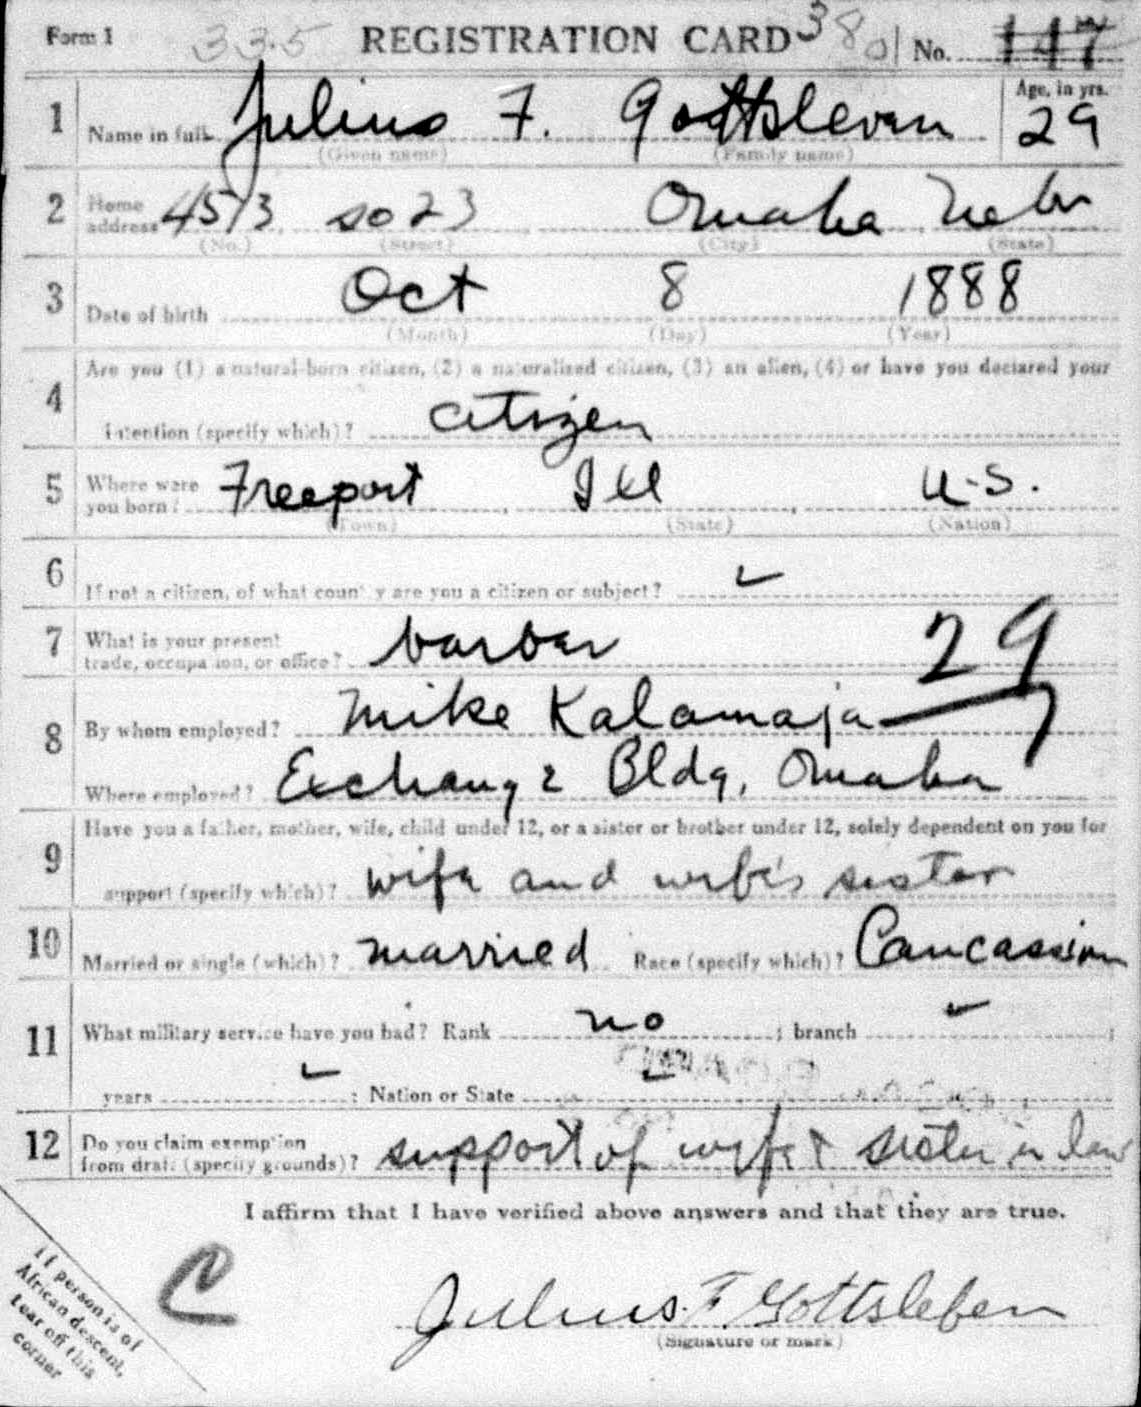 Form 1 335 REGISTRATION CARD 380 No. 147
1 Name in full Julius F. Gottsleven Age, in yrs. 29
(Given name) (Family name)
2 Home address 4513 so 23 Omaha Nebr
(No.) (Street) (City) (State)
3 Date of birth Oct 8 1888
(Month) (Day) (Year)
4 Are you (1) a natural-born citizen, (2) a naturalized citizen, (3) an alien, (4) or have you declared your
intention (specify which)? citizen
5 Where were you born? Freeport Ill U.S.
(Town) (State) (Nation)
6 If not a citizen, of what country are you a citizen or subject?
7 What is your present trade, occupation, or office? barber 29
8 By whom employed? Mike Kalamaja
Where employed? Exchange Bldg, Omaha
9 Have you a father, mother, wife, child under 12, or a sister or brother under 12, solely dependent on you for
support (specify which)? wife and wife's sister
10 Married or single (which)? married Race (specify which)? Caucassian
11 What military service have you had? Rank no ; branch ;
years ; Nation or State
12 Do you claim exemption from draft (specify grounds)? support of wife & sister in law
I affirm that I have verified above answers and that they are true.
If person is of
African descent,
tear off this
corner
C
Julius F Gottsleben
(Signature or mark)